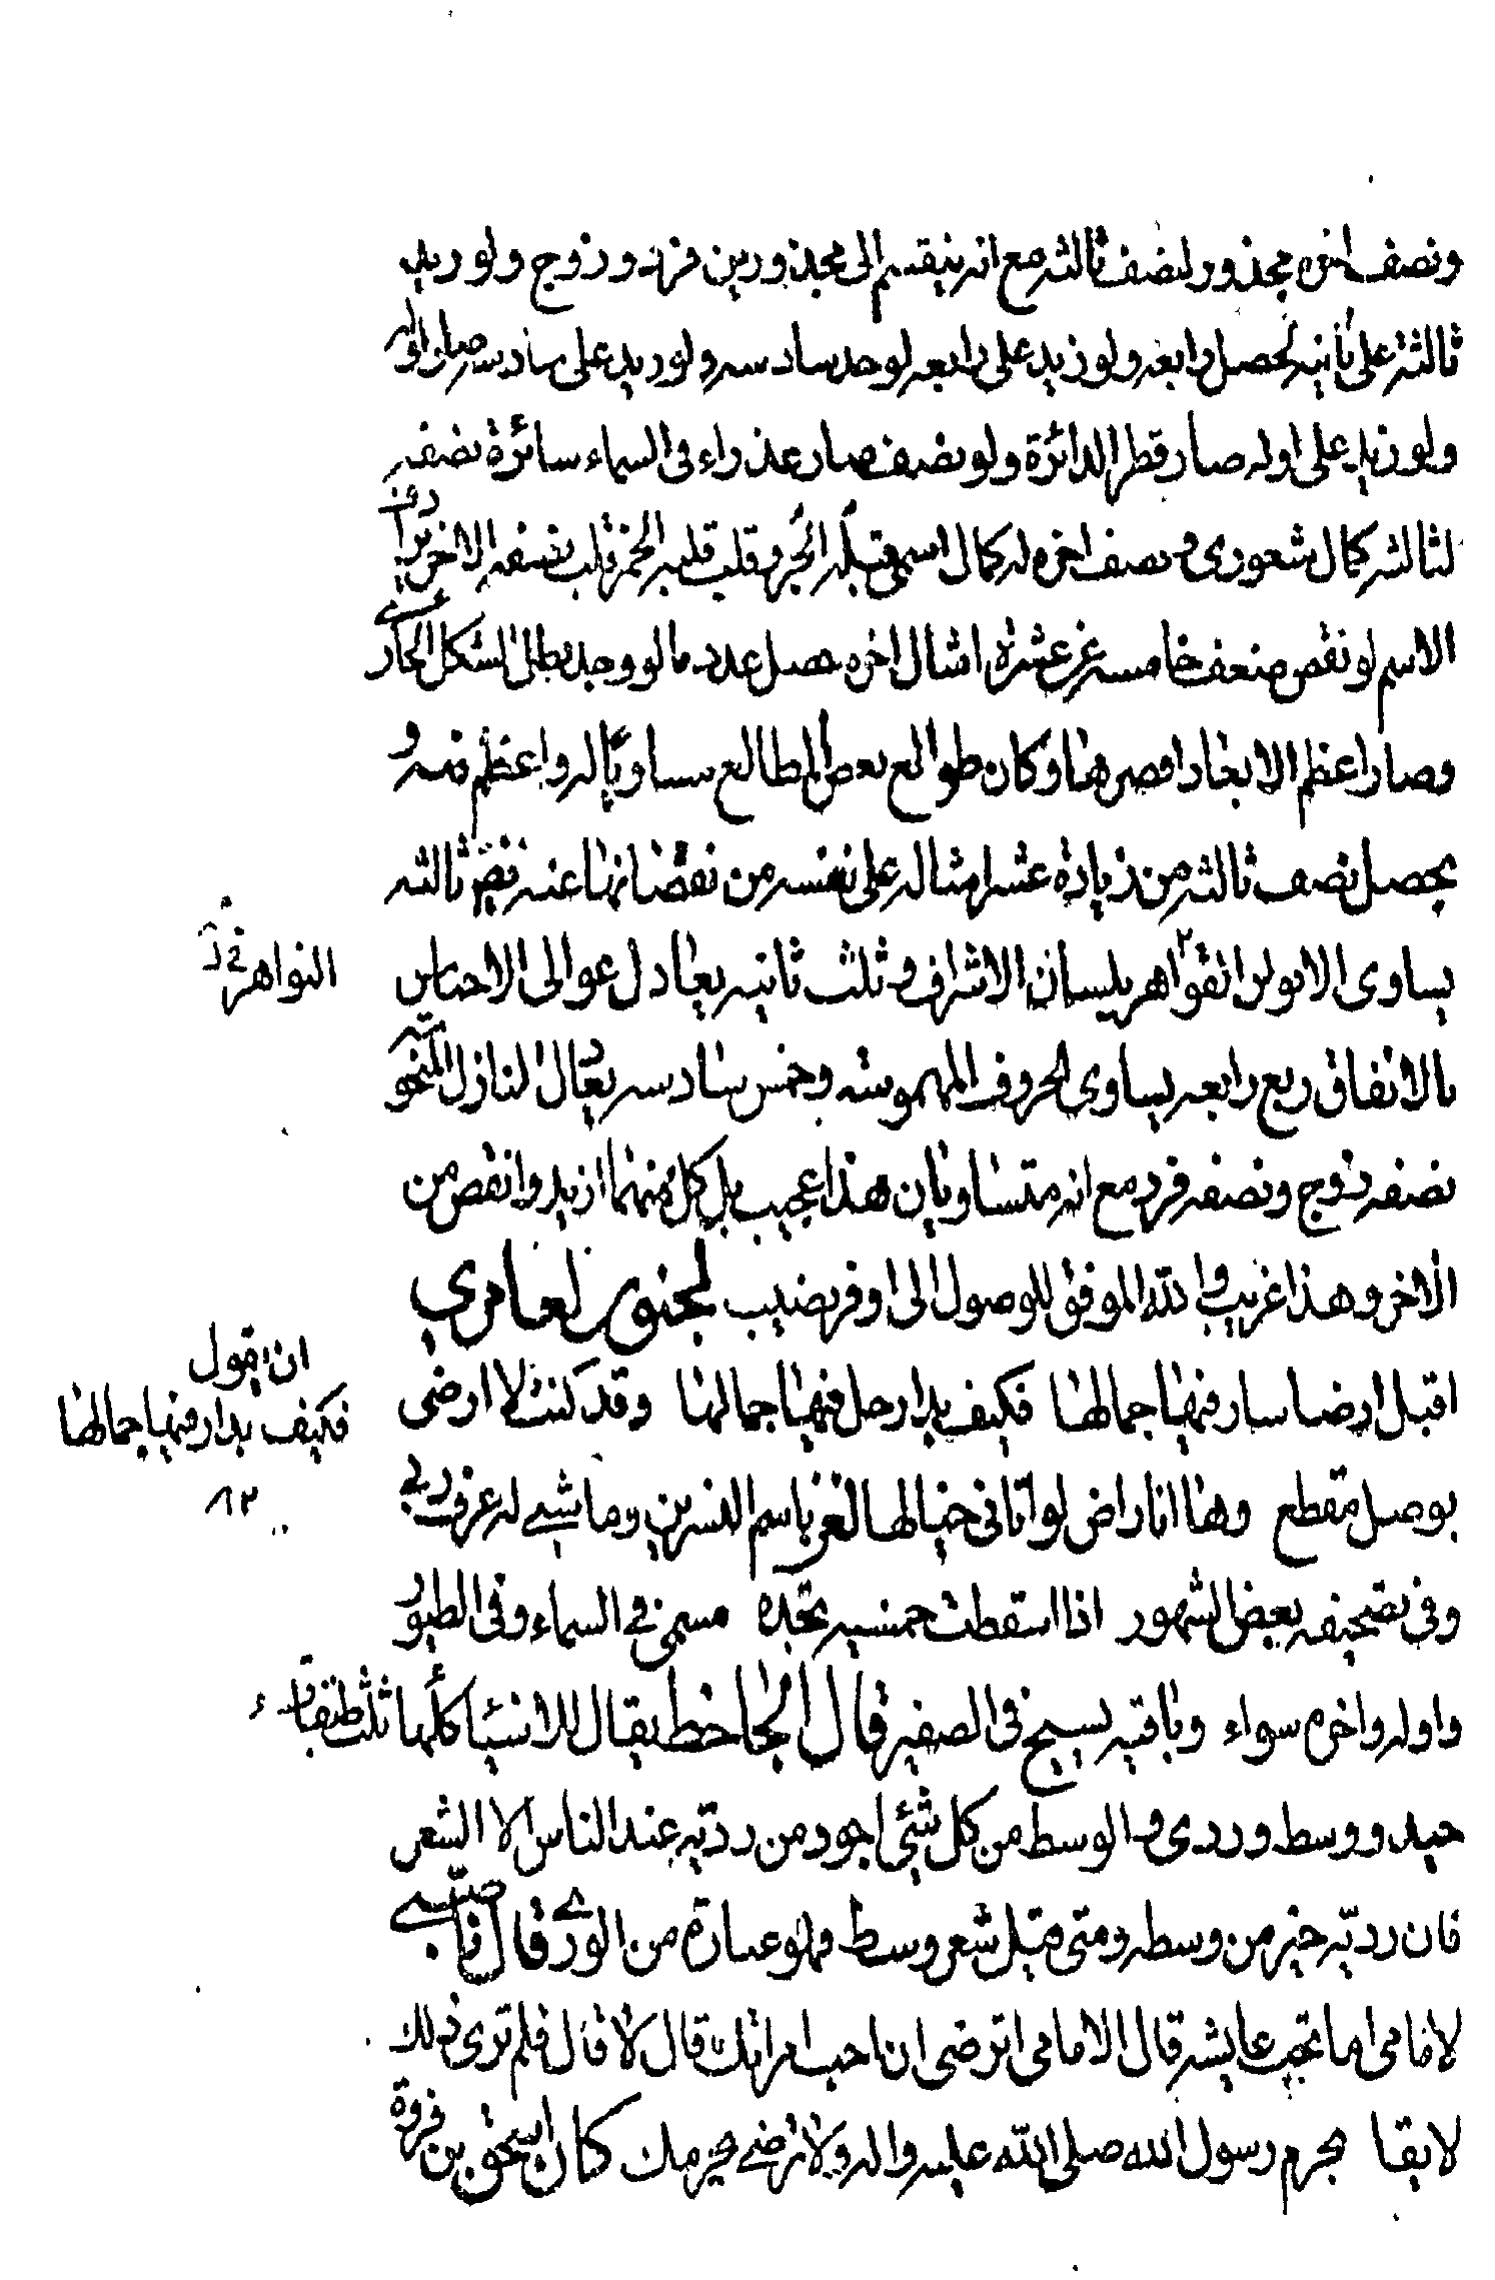 ونصف اخره مجذور لنصف ثالثه مع انه ينقسم الى مجذورين فرد وزوج ولو زيد
ثالثة على ثانيه لحصل رابعه ولو زيد على رابعه لوجد سادسه ولو زيد على سادسه صار اوله
ولو زيد على اوله صار قطر الدائرة ولو نصف صار عذراء فى السماء سائرة نصفه
لثالثه كمال شعورى ونصف اخره له كمال اسمى قلب نصفه الاخر
الاسم لو نقص ضعف خامسه عن عشرة امثال اخره حصل عدد ما لو وجد بطل الشكل الحمارى
وصار اعظم الابعاد اقصرها وكان طوالع بعض المطالع مساويا له واعظم منه و
يحصل نصف ثالثه من زيادة عشر امثاله على نفسه من نقصانها عنه ثالثه
يساوى القواهر بلسان الاشراف وثلث ثانيه يعادل عوالى الاجناس
النواهر
بالاتفاق ربع رابعه يساوى الحروف المهموسه وخمس سادسه يعادل المنازل المنحوسه
نصفه زوج ونصفه فرد مع انه متساويان هذا عجيب بل كل منهما ازيد وانقص من
الاخر وهذا غريب والله الموفق للوصول الى اوفر نصيب لمجنون لعامري
اقبل ارضا سار فيها جمالها فكيف بدار حل فيها جمالها وقد كنت لا ارضى
ان يقول
فكيف بدار فيها جمالها
١٢
بوصل متقطع وها انا راض لو اتانى خيالها لغز باسم النسرين وما شيء له عرف
وفى تصحيفه بعض الشهور اذا اسقطت خمسيه تجده مسمى فى السماء وفى الطيور
واوله واخره سواء وباقيه يسبح فى الصفير قال الجاحظ يقال للاشيا كلها ثلث طبقات
جيد ووسط وردى والوسط من كل شئ اجود من رديه عند الناس الا الشعر
فان رديه خير من وسطه ومتى قيل شعر وسط فهو عبارة من الوردى قال ناصبي
لامامى اما تحب عايشه قال الامامى اترضى ان احب امراتك قال لا قال فلم ترى ذلك
لابقا بحرم رسول الله صلى الله عليه واله ولا ترضى حرمك كان اسحق بن فروة